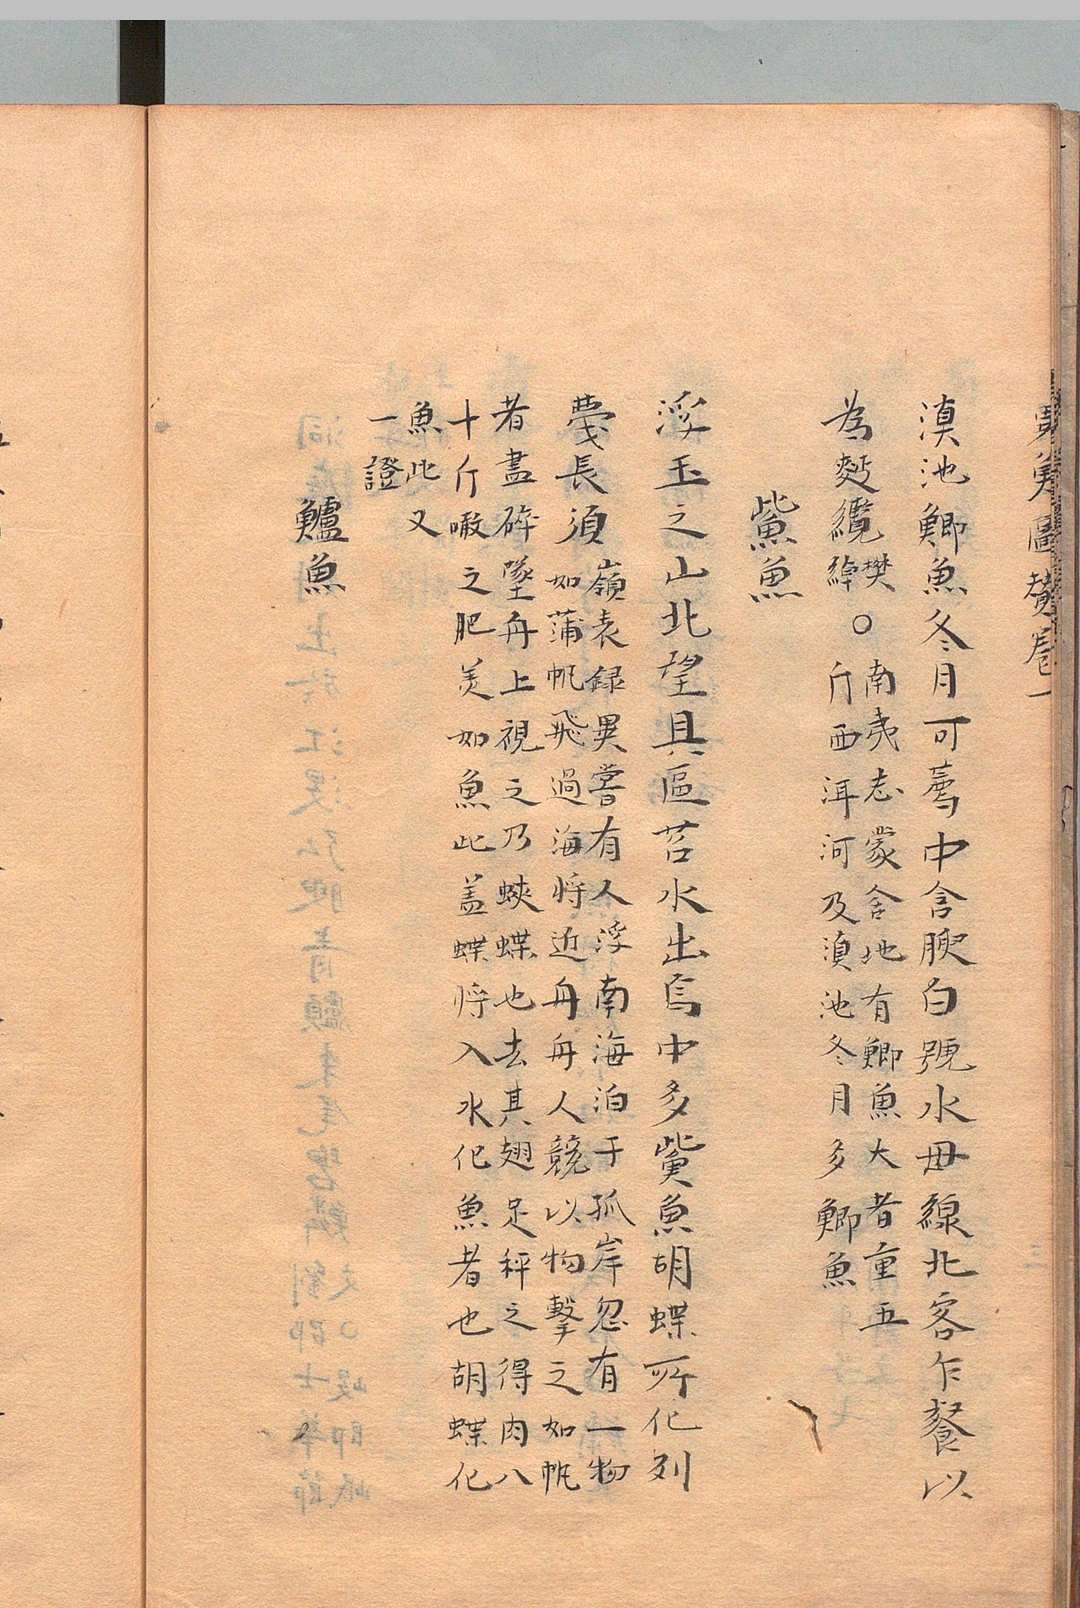 異魚圖贊卷一
滇池鯽魚冬月可薦中含腴白號水母線北客乍餐以
為麪纜樊綽
○南夷志蒙舍地有鯽魚大者重五
斤西洱河及滇池冬月多鯽魚
鮆魚
浮玉之山北望具區苕水出焉中多鮆魚胡蝶所化列
鬣長須嶺表録異嘗有人浮南海泊于孤岸忽有一物
如蒲帆飛過海將近舟舟人競以物擊之如帆
者盡碎墜舟上視之乃蛺蝶也去其翅足秤之得肉八
十斤噉之肥美如魚此盖蝶將入水化魚者也胡蝶化
魚此又
一證
鱸魚